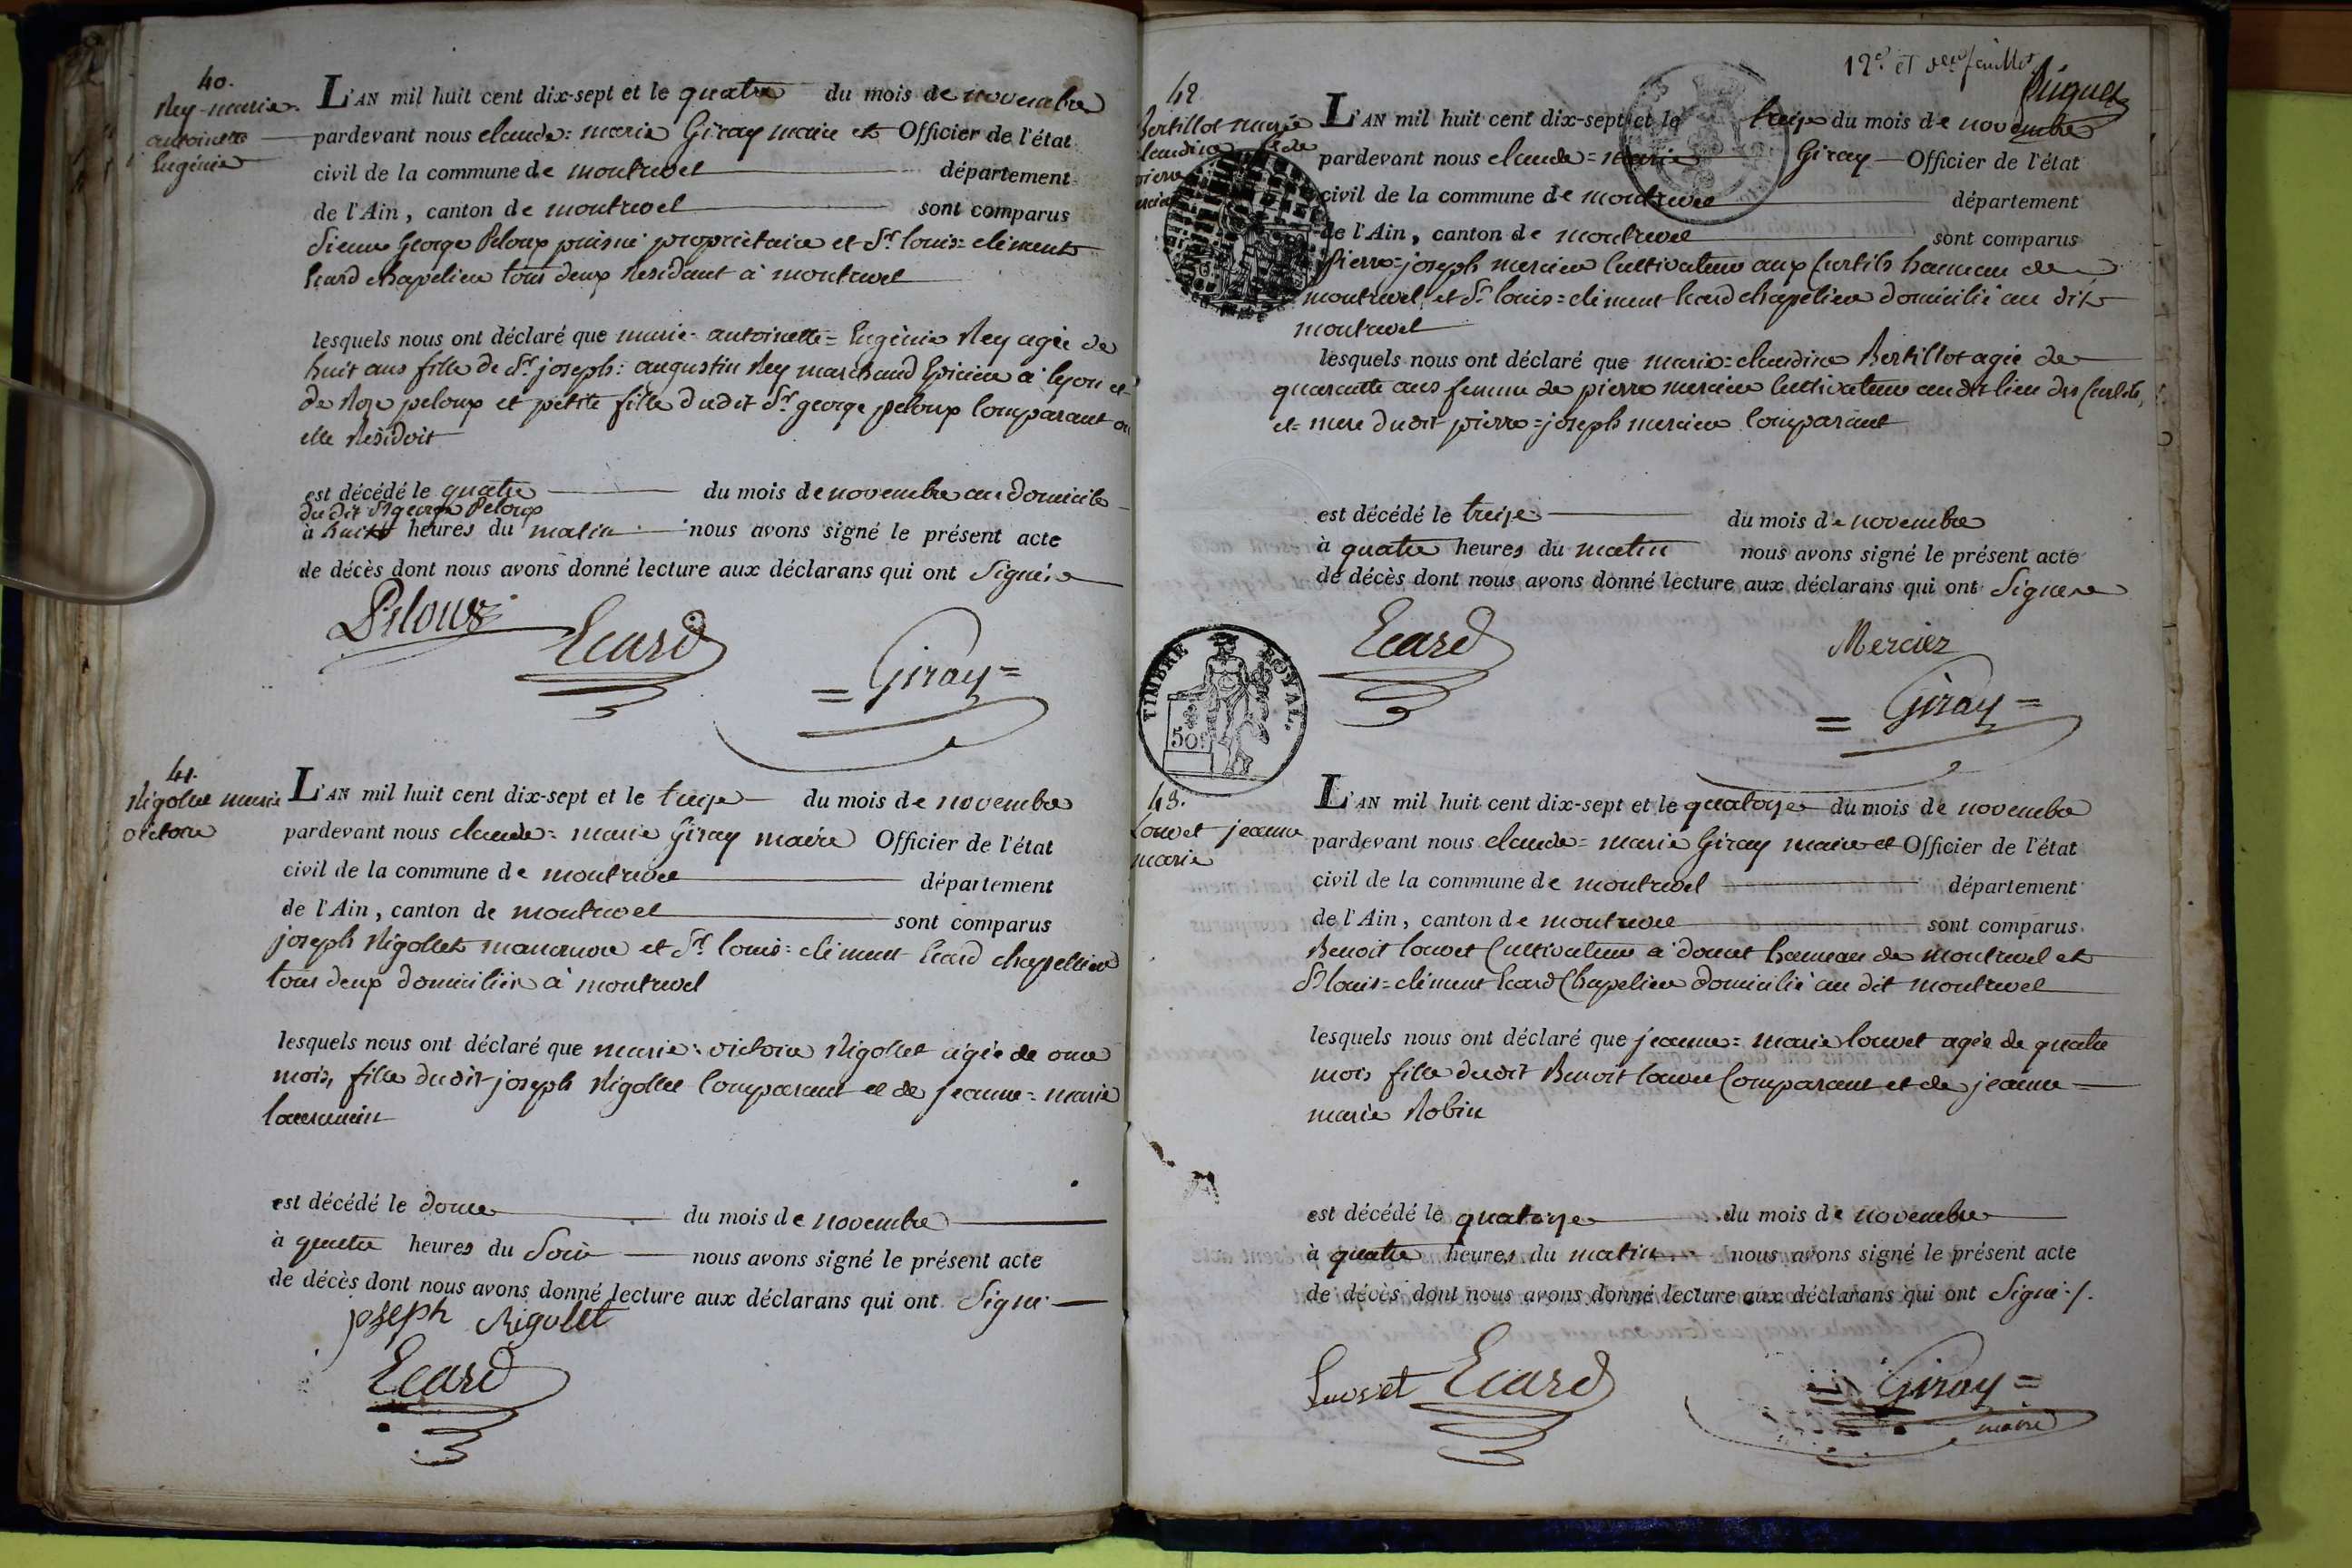 40.
Rey marie
antoinette
Eugénie
L'AN mil huit cent dix-sept et le quatre du mois de novembre
pardevant nous claude=marie Giray maire et Officier de l'état
civil de la commune de montrevel département
de l'Ain, canton de montrevel sont comparus
Sieur George Peloux puisné propriétaire et Sr louis=clément
Ecard chapelier tous deux Residant à montrevel
lesquels nous ont déclaré que marie=antoinette=Eugénie Rey agée de
huit ans fille de Sr joseph=augustin Rey marchand Epicier à lyon et
de Rose peloux et petite fille dudit Sr george peloux Comparant où
elle Residoit
est décédé le quatre du mois de novembre au domicile
du dit Sr george Peloux
à huit heures du matin nous avons signé le présent acte
de décès dont nous avons donné lecture aux déclarans qui ont Signé
Peloux
Ecard
=Giray=
41.
Rigollet marie
victoire
L'AN mil huit cent dix-sept et le treize du mois de novembre
pardevant nous claude=marie Giray maire Officier de l'état
civil de la commune de montrevel département
de l'Ain, canton de montrevel sont comparus
joseph Rigollet manœuvre et Sr louis=clément Ecard chapellier
tous deux domiciliés à montrevel
lesquels nous ont déclaré que marie=victoire Rigollet agée de onze
mois, fille dudit joseph Rigollet Comparant et de jeanne=marie
est décédé le douze du mois de novembre
à quatre heures du Soir nous avons signé le présent acte
de décès dont nous avons donné lecture aux déclarans qui ont Signé
joseph Rigollet
Ecard
12e et feuillet
42
Bertillot marie
claudine fe de
pierre
mercier
L'AN mil huit cent dix-sept et le treize du mois de novembre
pardevant nous claude=marie Giray Officier de l'état
civil de la commune de montrevel département
de l'Ain, canton de montrevel sont comparus
pierre=joseph mercier Cultivateur aux Curtils hameau de
montrevel et Sr louis=clément Ecard chapelier domicilié au dit
montrevel
lesquels nous ont déclaré que marie=claudine Bertillot agée de
quarante ans femme de pierre mercier Cultivateur audit lieu des Curtils,
et mere dudit pierre=joseph mercier Comparant
est décédé le treize du mois de novembre
à quatre heures du matin nous avons signé le présent acte
de décès dont nous avons donné lecture aux déclarans qui ont Signé
Ecard
Mercier
=Giray=
TIMBRE ROYAL.
50c
43.
Louvet jeanne
marie
L'AN mil huit cent dix-sept et le quatorze du mois de novembre
pardevant nous claude=marie Giray maire et Officier de l'état
civil de la commune de montrevel département
de l'Ain, canton de montrevel sont comparus
Benoit louvet Cultivateur à hameau de montrevel et
Sr louis=clément Ecard Chapelier domicilié au dit montrevel
lesquels nous ont déclaré que jeanne=marie louvet agée de quatre
mois fille dudit Benoit louvet Comparant et de jeanne
marie Robin
est décédé le quatorze du mois de novembre
à quatre heures du matin nous avons signé le présent acte
de décès dont nous avons donné lecture aux déclarans qui ont Signé ./.
Luvset Ecard
=Giray=
maire